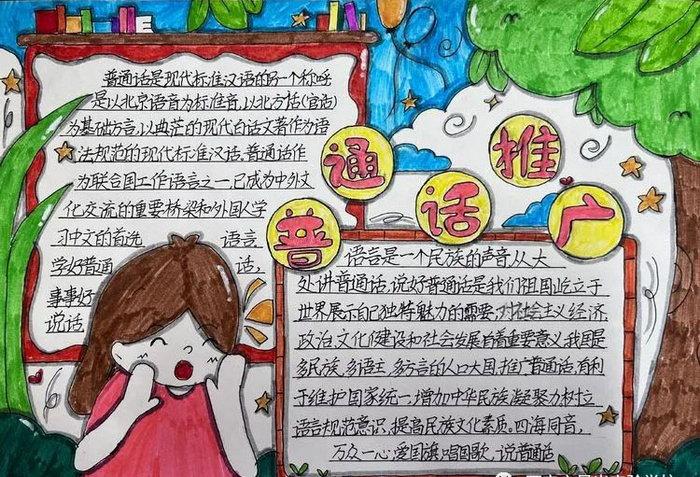 普通话是现代标准汉语的另一个称呼
是以北京语音为标准音,以北方话(官话)
为基础方言,以典范的现代白话文著作为语
法规范的现代标准汉话.普通话作
为联合国工作语言之一,已成为中外文
化交流的重要桥梁和外国人学
习中文的首选 语言
学好普通 话,
事事好
说话
普通话推广
语言是一个民族的声音,从大
处讲普通话,说好普通话是我们祖国屹立于
世界展示自己独特魅力的需要,对社会主义经济
政治,文化建设和社会发展有着重要意义,我国是
多民族,多语言,多方言的人口大国,推广普通话,有利
于维护国家统一,增加中华民族凝聚力,树立
语言规范意识,提高民族文化素质。四海同音,
万众一心,爱国旗,唱国歌,说普通话